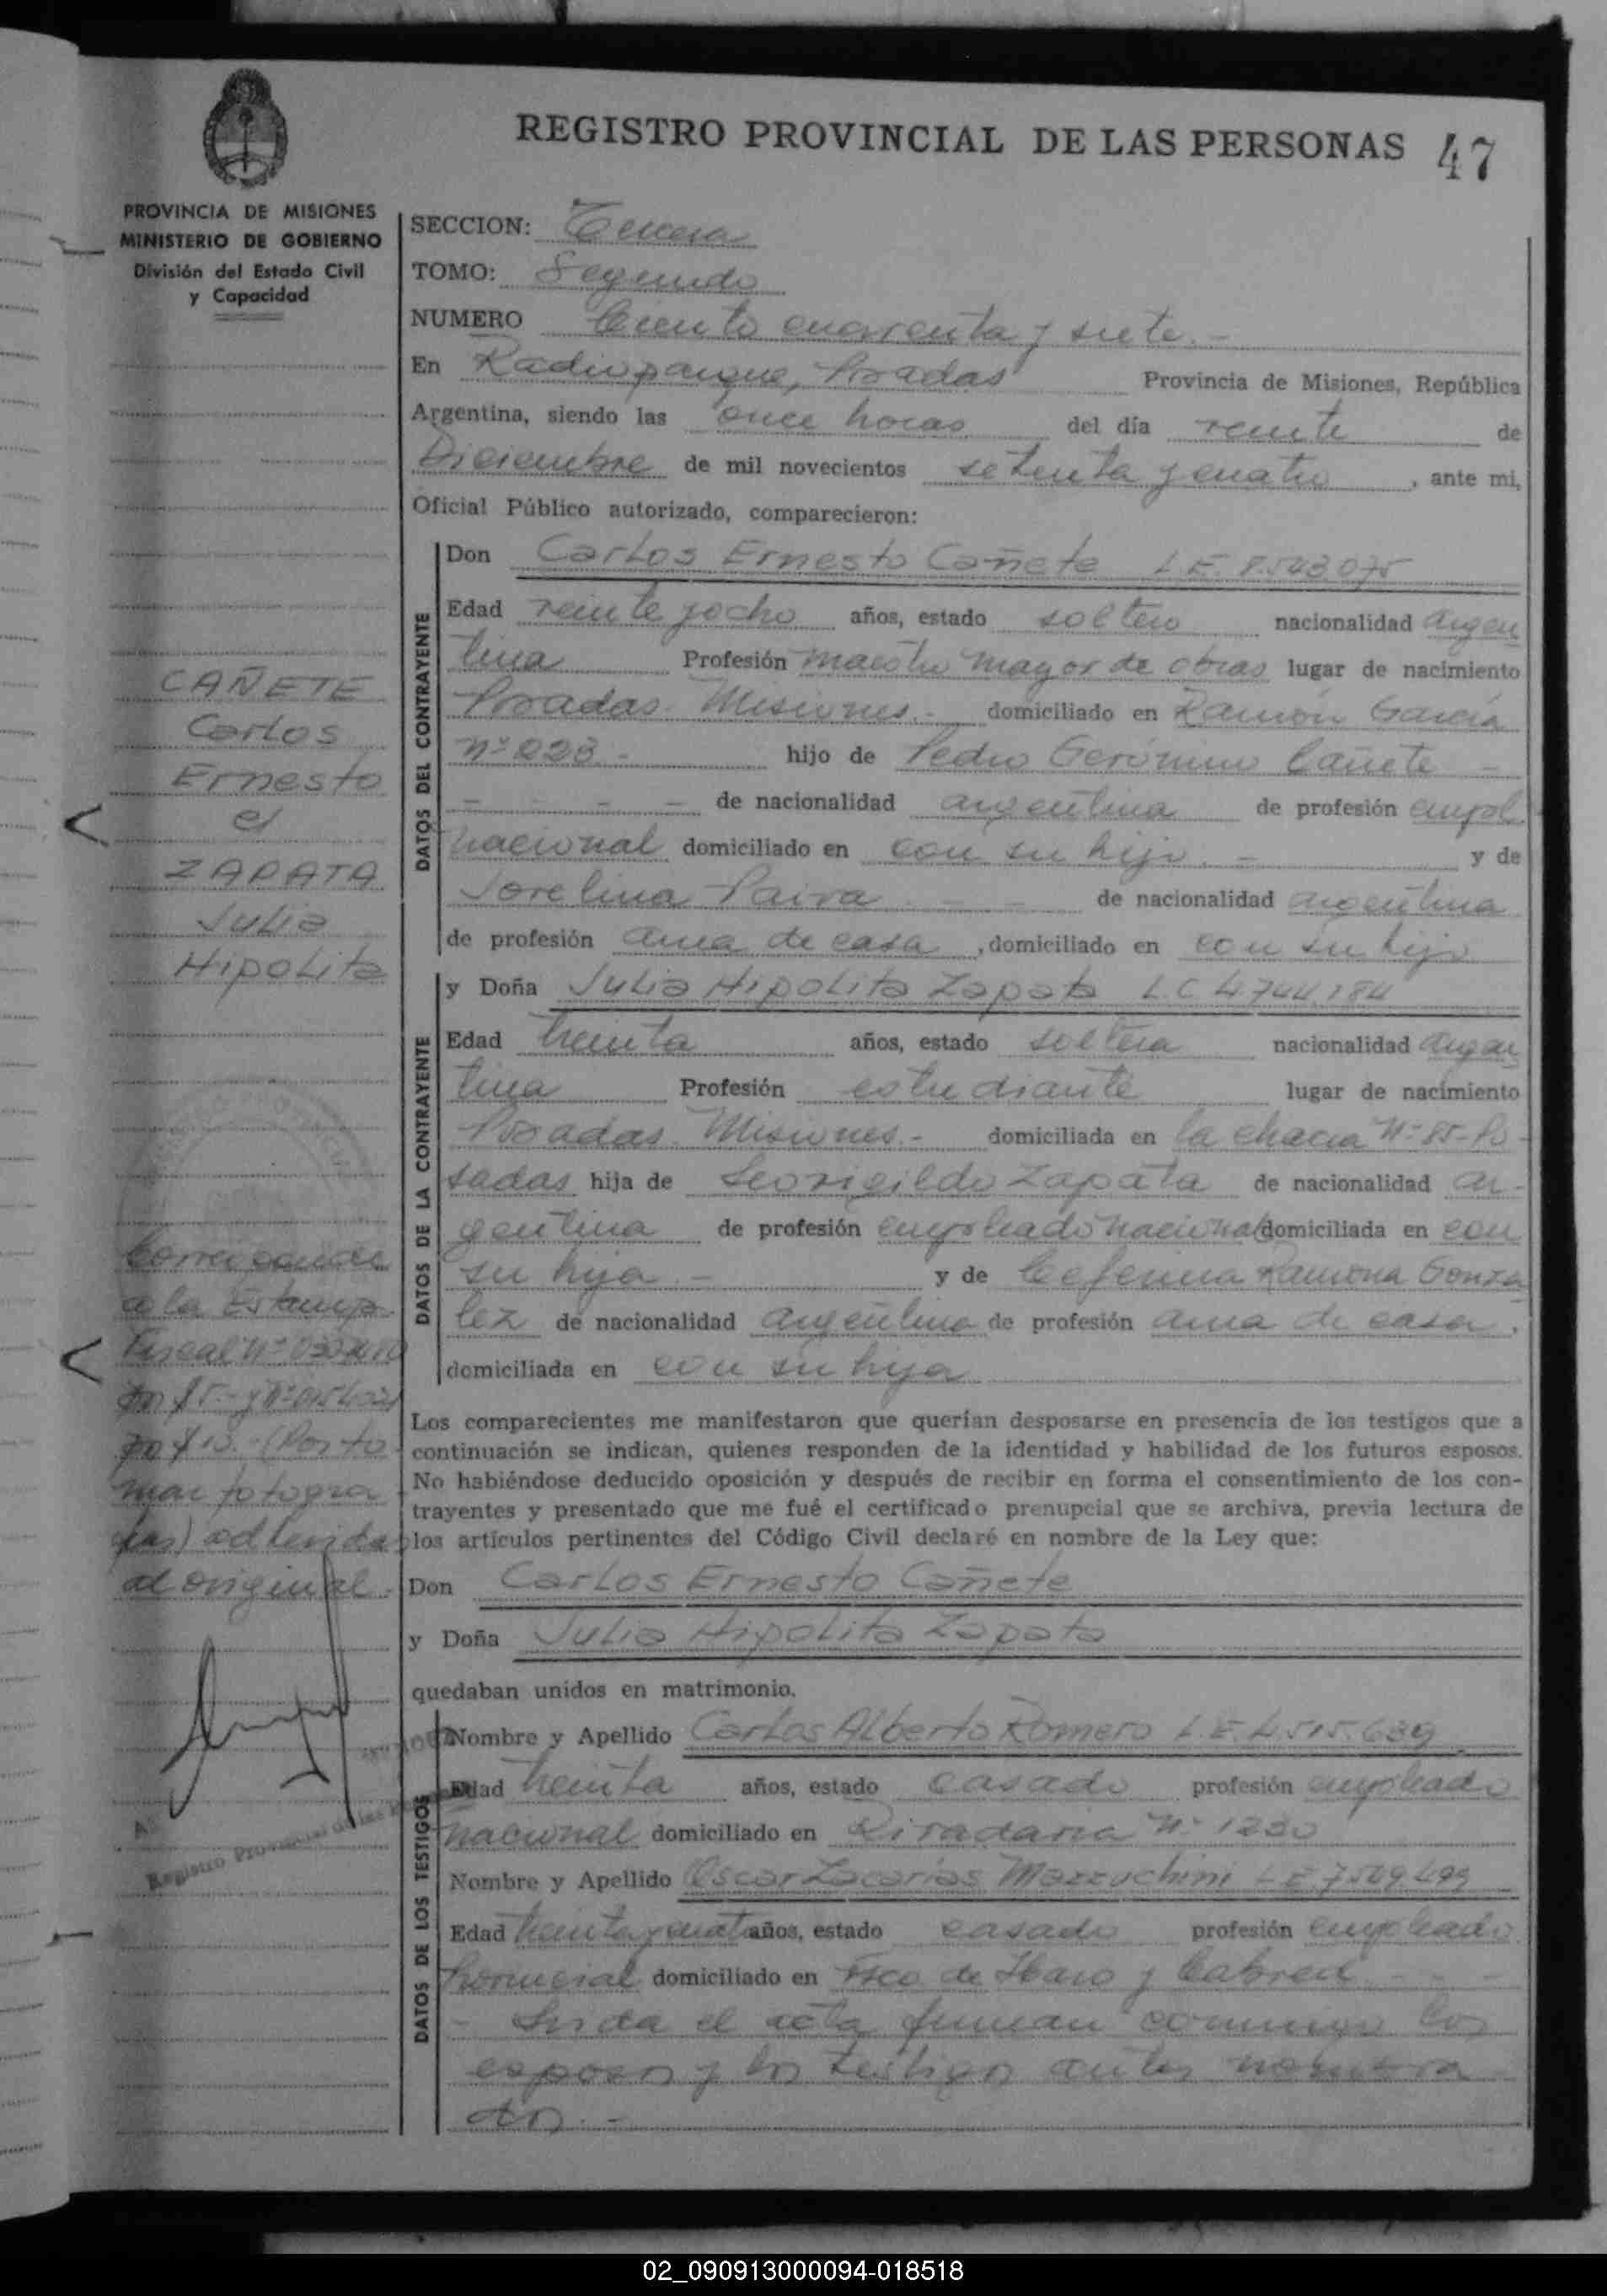 REGISTRO PROVINCIAL DE LAS PERSONAS 47
PROVINCIA DE MISIONES
MINISTERIO DE GOBIERNO
División del Estado Civil
y Capacidad
SECCION: Tercera
TOMO: Segundo
NUMERO Ciento cuarenta y siete.-
En Radioparque, Posadas Provincia de Misiones, República
Argentina, siendo las once horas del día veinte de
Diciembre de mil novecientos setenta y cuatro, ante mi,
Oficial Público autorizado, comparecieron:
DATOS DEL CONTRAYENTE
Don Carlos Ernesto Cañete L.E. 8.543.075
Edad veinte y ocho años, estado soltero nacionalidad argen
tina Profesión maestro mayor de obras lugar de nacimiento
Posadas Misiones.- domiciliado en Ramón García
Nº 228.- hijo de Pedro Gerónimo Cañete -
- - - - de nacionalidad argentina de profesión empl.
nacional domiciliado en con su hijo.- y de
Jovelina Paiva - - de nacionalidad argentina
de profesión ama de casa, domiciliado en con su hijo
DATOS DE LA CONTRAYENTE
y Doña Julia Hipolita Zapata L.C 4.744.184
Edad treinta años, estado soltera nacionalidad argen
tina Profesión estudiante lugar de nacimiento
Posadas Misiones.- domiciliada en la chacra Nº 85-Po
sadas hija de Leovigildo Zapata de nacionalidad ar-
gentina de profesión empleado nacional domiciliada en con
su hija.- y de Ceferina Ramona Gonza
lez de nacionalidad argentina de profesión ama de casa.
domiciliada en con su hija
Los comparecientes me manifestaron que querían desposarse en presencia de los testigos que a
continuación se indican, quienes responden de la identidad y habilidad de los futuros esposos.
No habiéndose deducido oposición y después de recibir en forma el consentimiento de los con-
trayentes y presentado que me fué el certificado prenupcial que se archiva, previa lectura de
los artículos pertinentes del Código Civil declaré en nombre de la Ley que:
Don Carlos Ernesto Cañete
y Doña Julia Hipolita Zapata
quedaban unidos en matrimonio.
DATOS DE LOS TESTIGOS
Nombre y Apellido Carlos Alberto Romero L.E. 4.515.639
Edad treinta años, estado casado profesión empleado
nacional domiciliado en Rivadavia Nº 1230
Nombre y Apellido Oscar Zacarias Mazzuchini L.E 7.549.499
Edad treinta y cuatro años, estado casado profesión empleado
provincial domiciliado en Fsco. de Haro y Cabred - - -
- Leida el acta firman conmigo los
esposos y los testigos antes nombra
dos.-
CAÑETE
Carlos
Ernesto
c/
ZAPATA
Julia
Hipolita
a la Estampi
Fiscal Nº
(Por to
mar fotogra
fias) adherida
al original
Registro Provincial de las
02_090913000094-018518